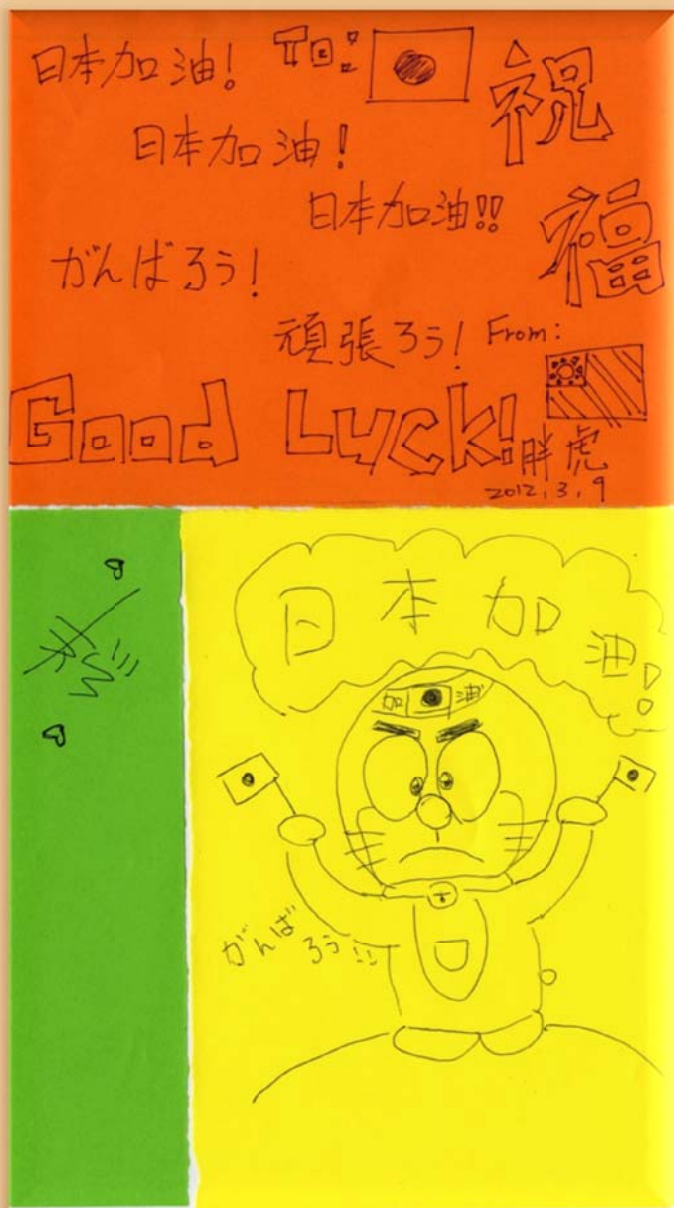 日本加油! To:
祝福
日本加油!
日本加油!!
がんばろう!
頑張ろう! From:
Good Luck!
胖虎
2012.3.9
日本加油!
加 油
がんばろう!!